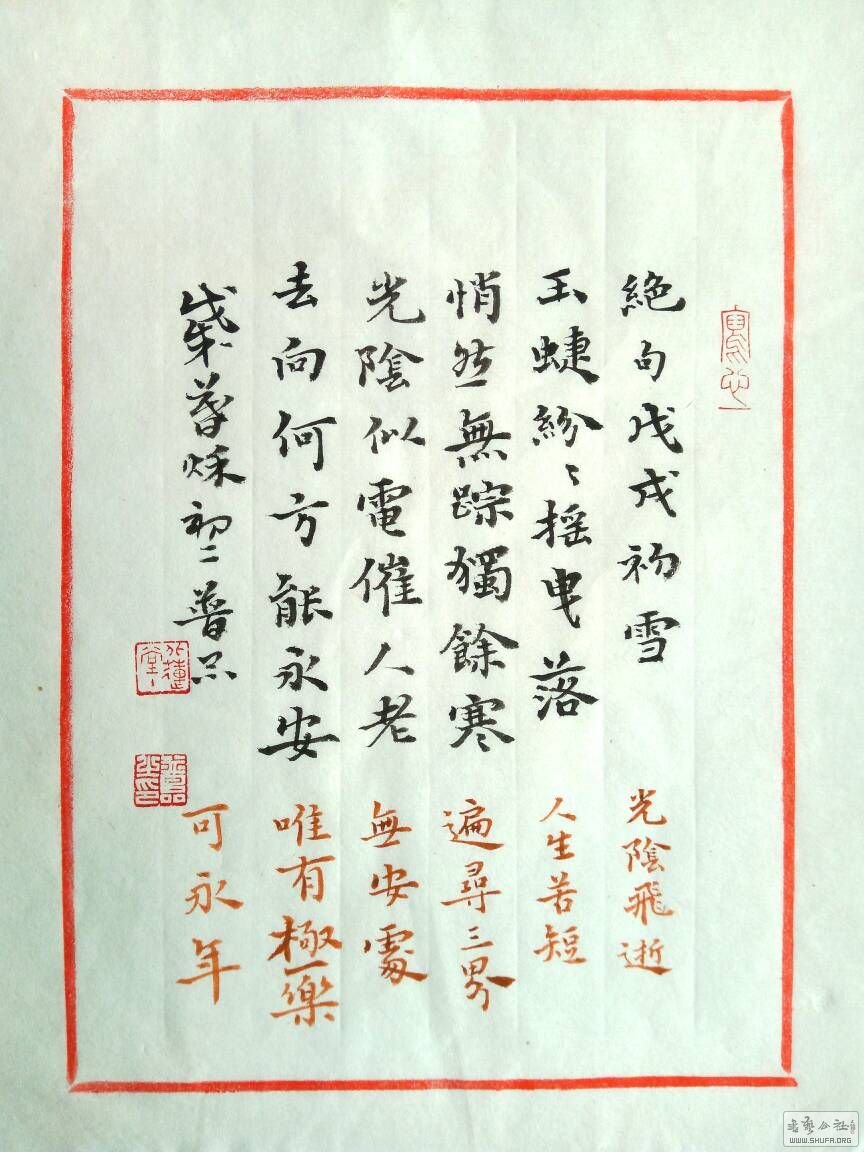 寫心
絕句戊戌初雪
玉蜨紛〻摇曳落
悄然無踪獨餘寒
光陰似電催人老
去向何方能永安
初二普品
光陰飛逝
人生苦短
遍尋三界
無安處
唯有極樂
可永年
WWW.SHUFA.ORG